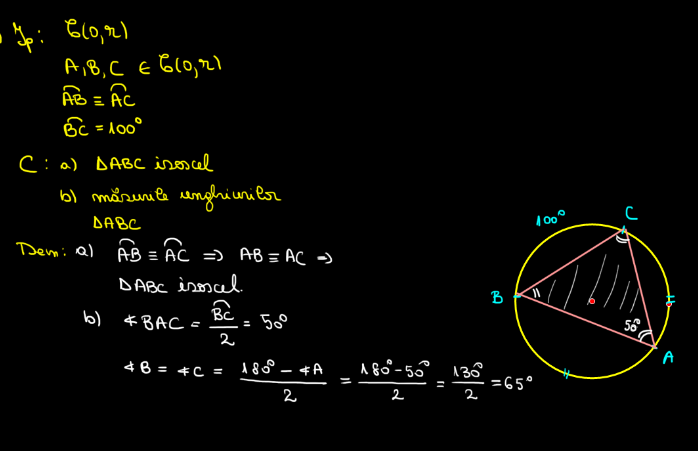 Ip: C(O,r)
A,B,C ∈ C(O,r)
A͡B ≡ A͡C
B͡C = 100°
C: a) ΔABC isoscel
b) măsurile unghiurilor
ΔABC
Dem: a) A͡B ≡ A͡C ⇒ AB ≡ AC ⇒
ΔABC isoscel.
b) ∢BAC = B͡C/2 = 50°
∢B = ∢C = (180° - ∢A)/2 = (180° - 50°)/2 = 130°/2 = 65°
100°
C
B
50°
A